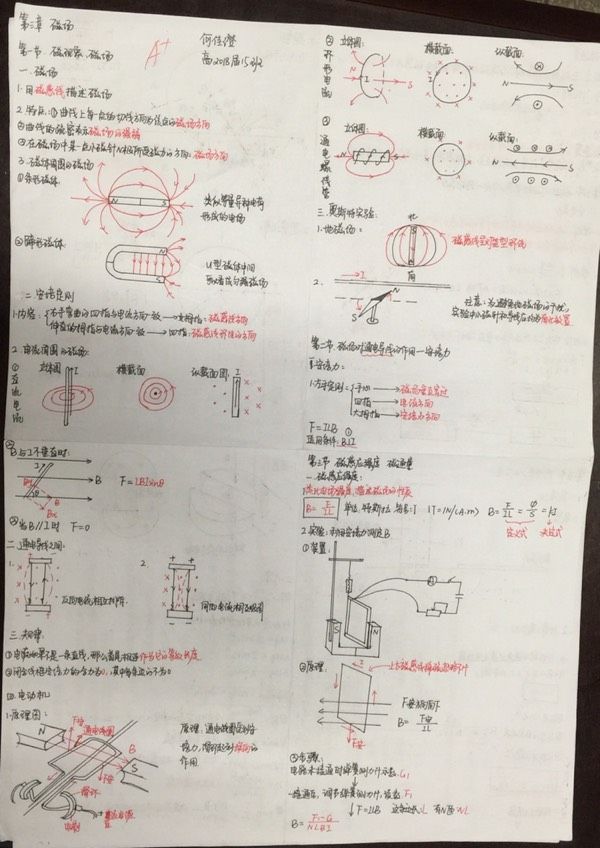 第三章 磁场
何佳澄
高2018届15班
A+
第一节 磁现象 磁场
一. 磁场
1. 用磁感线描述磁场
2. 特点: ①曲线上每一点的切线方向为该点的磁场方向
②曲线的疏密表示磁场的强弱
③在磁场中某一点小磁针N极所受磁力的方向: 磁场方向
3. 磁体周围的磁场
①条形磁体
N S
类似等量异种电荷
形成的电场
②蹄形磁体
N
S
U型磁体中间
二. 安培定则
1. 内容:
右手弯曲的四指与电流方向一致 → 大拇指: 磁感线方向
伸直的拇指与电流方向一致 → 四指: 磁感线环绕的方向
2. 电流周围的磁场:
①直流电流
立体图 横截面 纵截面图
I
②环形电流
立体图: 横截面: 纵截面:
N I S
③通电螺线管
立体图: 横截面: 纵截面:
N S
三. 奥斯特实验
1. 地磁场:
北
南
2.
I
N
S
注意: 为避免地磁场的干扰,
实验中小磁针和导线应均为南北放置
第二节 磁场对通电导线的作用—安培力
一. 安培力:
1. 左手定则:
手心 → 磁感线垂直穿过
四指 → 电流方向
大拇指 → 安培力方向
F=ILB ①
适用条件: B⊥I
②B与I不垂直时:
I
B
θ
F=LBIsinθ
③当B//I时 F=0
二. 通电导线之间:
1.
反向电流相互排斥.
2.
同向电流相互吸引
三. 规律:
①电流如果不是一条直线, 那么首尾相连作为它的等效长度
②闭合线框安培力的合力为0, 其中每条边的不为0
四. 电动机
1. 原理图:
N
S
F安
通电线圈
B
F安
电刷
原理: 通电线圈受到安
培力, 循环起到换向的
作用
第三节 磁感应强度 磁通量
一. 磁感应强度:
B=F/IL 单位: 特斯拉 符号: T 1T=1N/(A.m) B=F/IL=φ/S
定义式 决定式
2. 实验: 利用安培力测定B
①装置:
N S
②原理:
I
上方磁感线稀疏忽略不计
F安方向向下
B=F安/IL
F安
③步骤:
电路未接通时弹簧测力计示数: G1
接通后, 调节弹簧测力计, 读数: F1
F=ILB 这条边长L 有N匝 NL